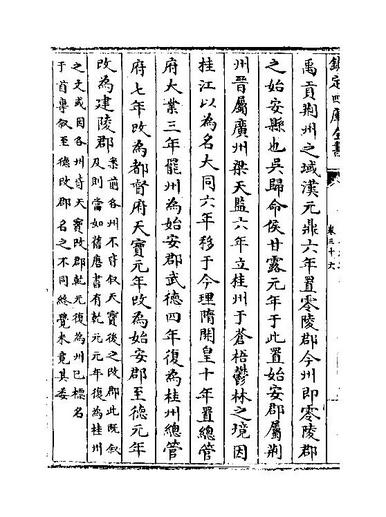 欽定四庫全書
卷三十六
禹貢荆州之域漢元鼎六年置零陵郡今州即零陵郡
之始安縣也吳歸命侯甘露元年于此置始安郡屬荆
州晉屬廣州梁天監六年立桂州于蒼梧鬱林之境因
桂江以為名大同六年移于今理隋開皇十年置總管
府大業三年罷州為始安郡武德四年復為桂州總管
府七年改為都督府天寶元年改為始安郡至德元年
改為建陵郡
案前各州不書叙天寶後之改郡此既叙
及則當如舊唐書有乾元元年復為桂州
之文或因各州皆天寶改郡乾元復為州已標名
于首專叙至德改郡名之不同終覺未竟其委